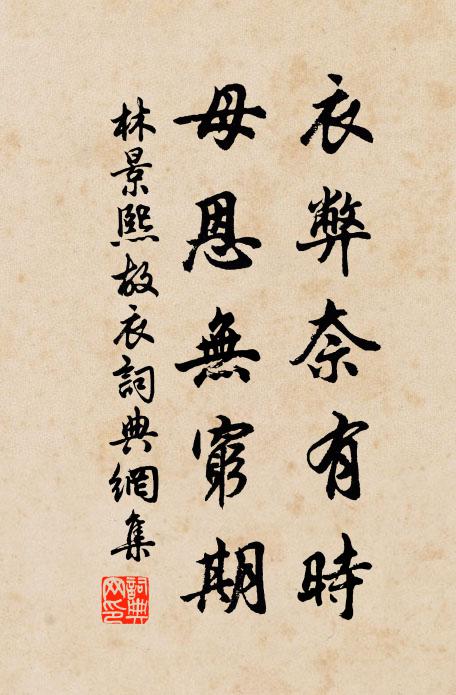 衣弊奈有時
母恩無窮期
林景熙故衣詞典網集
詞典網印